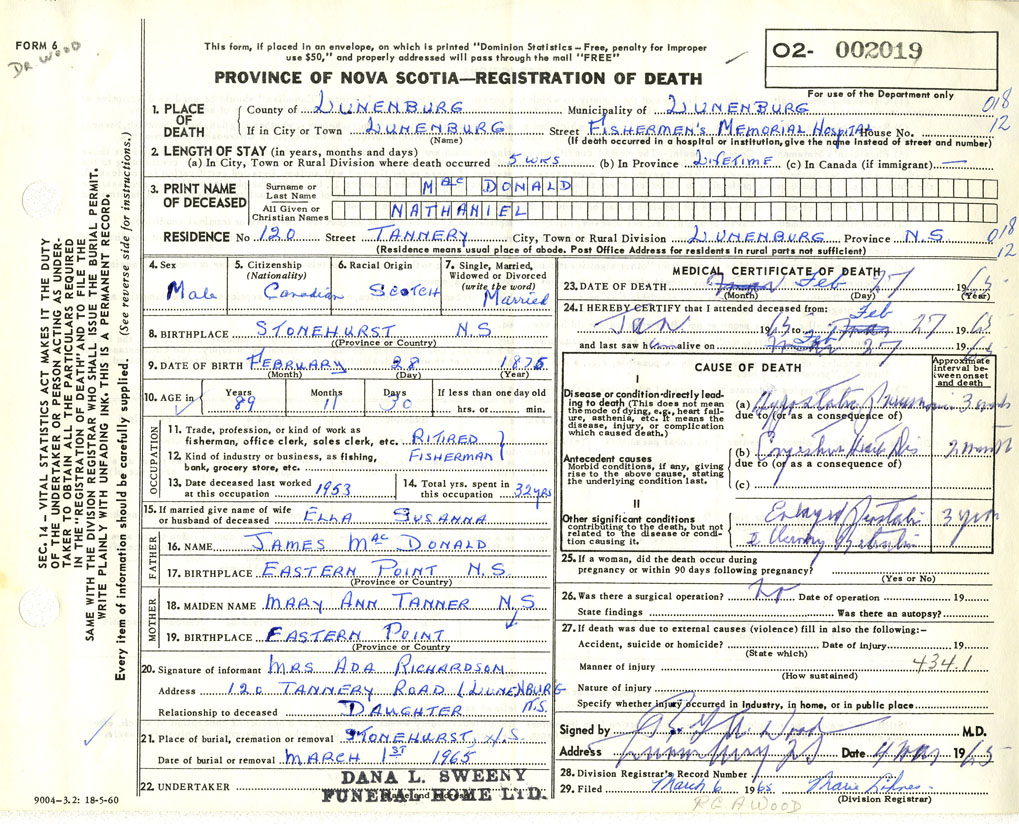 FORM 6
DR WOOD
This form, if placed in an envelope, on which is printed "Dominion Statistics – Free, penalty for improper
use $50," and properly addressed will pass through the mail "FREE"
PROVINCE OF NOVA SCOTIA—REGISTRATION OF DEATH
O2- 002019
For use of the Department only
018
12
1. PLACE OF DEATH
County of LUNENBURG Municipality of LUNENBURG
If in City or Town LUNENBURG Street FISHERMEN'S MEMORIAL HOSPITAL House No.
(Name) (If death occurred in a hospital or institution, give the name instead of street and number)
2. LENGTH OF STAY (in years, months and days)
(a) In City, Town or Rural Division where death occurred 5 WKS (b) In Province LIFETIME (c) In Canada (if immigrant) —
3. PRINT NAME OF DECEASED
Surname or Last Name MacDONALD
All Given or Christian Names NATHANIEL
RESIDENCE No 120 Street TANNERY City, Town or Rural Division LUNENBURG Province N.S
018
12
(Residence means usual place of abode. Post Office Address for residents in rural parts not sufficient)
4. Sex
Male
5. Citizenship
(Nationality)
Canadian
6. Racial Origin
SCOTCH
7. Single, Married,
Widowed or Divorced
(write the word)
Married
8. BIRTHPLACE STONEHURST N.S
(Province or Country)
9. DATE OF BIRTH FEBRUARY 28 1875
(Month) (Day) (Year)
10. AGE in
Years Months Days If less than one day old
89 11 30 hrs. or min.
OCCUPATION
11. Trade, profession, or kind of work as
fisherman, office clerk, sales clerk, etc. RITIRED
12. Kind of industry or business, as fishing,
bank, grocery store, etc. FISHERMAN
13. Date deceased last worked
at this occupation 1953
14. Total yrs. spent in
this occupation 32 yrs
15. If married give name of wife
or husband of deceased ELLA SUSANNA
FATHER
16. NAME JAMES MacDONALD
17. BIRTHPLACE EASTERN POINT N.S
(Province or Country)
MOTHER
18. MAIDEN NAME MARY ANN TANNER N.S
19. BIRTHPLACE EASTERN POINT
(Province or Country)
20. Signature of informant MRS ADA RICHARDSON
Address 120 TANNERY ROAD LUNENBURG
N.S.
Relationship to deceased DAUGHTER
21. Place of burial, cremation or removal STONEHURST, N.S.
Date of burial or removal MARCH 1ST 1965
22. UNDERTAKER
DANA L. SWEENY
FUNERAL HOME LTD.
9004—3.2: 18-5-60
MEDICAL CERTIFICATE OF DEATH
23. DATE OF DEATH Feb 27 1965
(Month) (Day) (Year)
24. I HEREBY CERTIFY that I attended deceased from:
Jan 1965 to Feb 27 1965
and last saw h alive on Feb 27 1965
CAUSE OF DEATH
Approximate
interval between onset
and death
I
Disease or condition directly leading to death (This does not mean
the mode of dying, e.g., heart failure, asthenia, etc. It means the
disease, injury, or complication
which caused death.)
(a) Hypostatic Pneumonia 3 weeks
due to (or as a consequence of)
Antecedent causes
Morbid conditions, if any, giving
rise to the above cause, stating
the underlying condition last.
(b) Congestive Heart Dis 2 months
due to (or as a consequence of)
(c)
II
Other significant conditions
contributing to the death, but not
related to the disease or condition causing it.
Enlarged Prostate 3 years
25. If a woman, did the death occur during
pregnancy or within 90 days following pregnancy?
(Yes or No)
26. Was there a surgical operation? no Date of operation 19
State findings Was there an autopsy?
27. If death was due to external causes (violence) fill in also the following:—
Accident, suicide or homicide? Date of injury 19
(State which)
434.1
Manner of injury
(How sustained)
Nature of injury
Specify whether injury occurred in Industry, in home, or in public place
Signed by Wood M.D.
Address Lunenburg NS Date 4 Mar 1965
28. Division Registrar's Record Number
29. Filed March 6 1965 Marie
(Division Registrar)
R G A WOOD
SEC. 14 — VITAL STATISTICS ACT MAKES IT THE DUTY
OF THE UNDERTAKER OR PERSON ACTING AS UNDERTAKER TO OBTAIN ALL THE PARTICULARS REQUIRED
IN THE "REGISTRATION OF DEATH" AND TO FILE THE
SAME WITH THE DIVISION REGISTRAR WHO SHALL ISSUE THE BURIAL PERMIT.
WRITE PLAINLY WITH UNFADING INK. THIS IS A PERMANENT RECORD.
Every item of information should be carefully supplied. (See reverse side for instructions.)